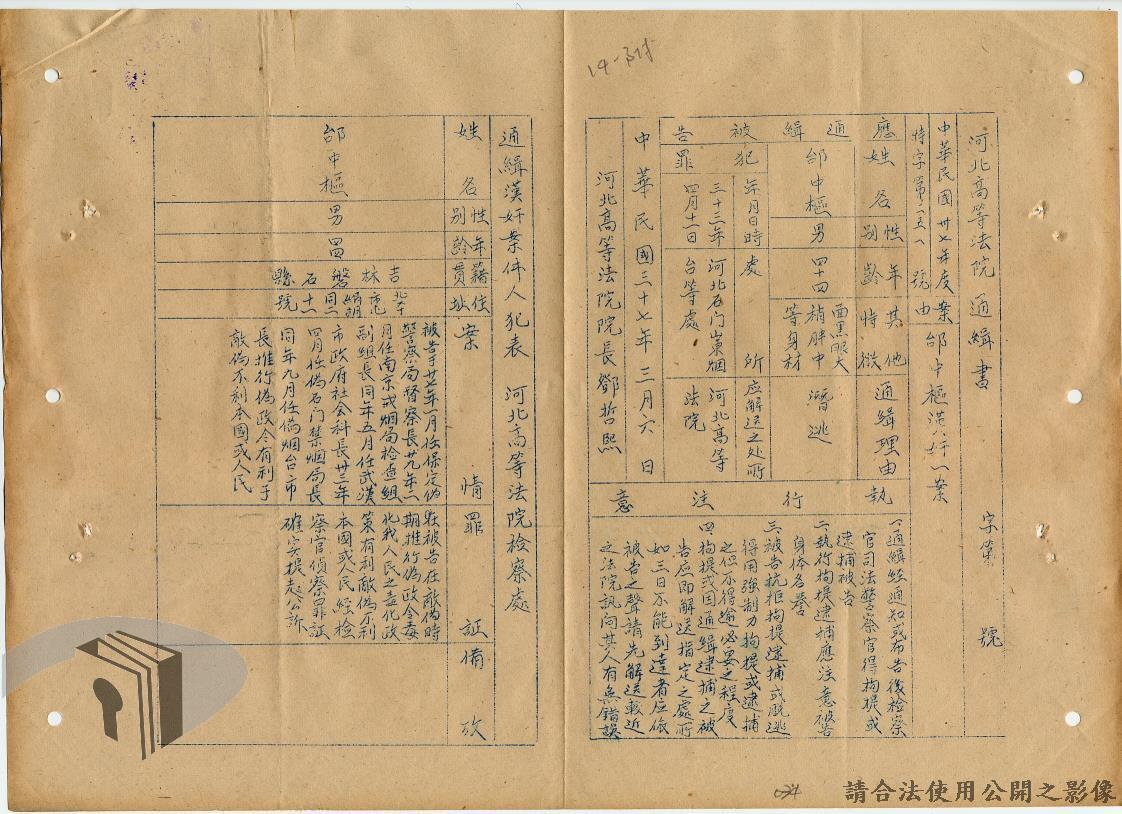 河北高等法院通緝書　字第　號
中華民國卅七年度
特字第二五八號
案由
邰中樞漢奸一案
應通緝被告
姓名
性別
年齡
其他特徵
通緝理由
邰中樞
男
四十四
面黑眼大
稍胖中
等身材
潛逃
犯罪
年月日時
處所
应解送之处所
三十三年
四月十一日
河北石门山東烟
台等處
河北高等
法院
中華民國三十七年三月六日
河北高等法院院長鄧哲熙
執行注意
一通緝經通知或布告後检察
官司法警察官得拘提或
逮捕被告
二執行拘提逮捕應注意被告
身体名誉
三被告抗拒拘提逮捕或脱逃
得用強制力拘提或逮捕
之但不得逾必要之程度
四拘提或因通緝逮捕之被
告应即解送指定之處所
如三日不能到達者应依
被告之聲請先解送較近
之法院訊问其人有無錯誤
通緝漢奸案件人犯表　河北高等法院检察處
姓名
性别
年齡
籍貫
住址
案情
罪証
備攷
邰中樞
男
吉林磐石縣
被告于廿七年一月任保定偽
警察局督察長廿九年二
月任南京戒烟局检查組
副組長同年五月任武漢
市政府社会科長卅三年
四月任偽石门禁烟局長
同年九月任偽烟台市
長推行偽政令有利于
敵偽不利本國或人民
查被告在敵偽時
期推行偽政令毒
化我人民之毒化政
策有利敵偽不利
本國或人民經检
察官偵察罪証
確实提起公訴
請合法使用公開之影像